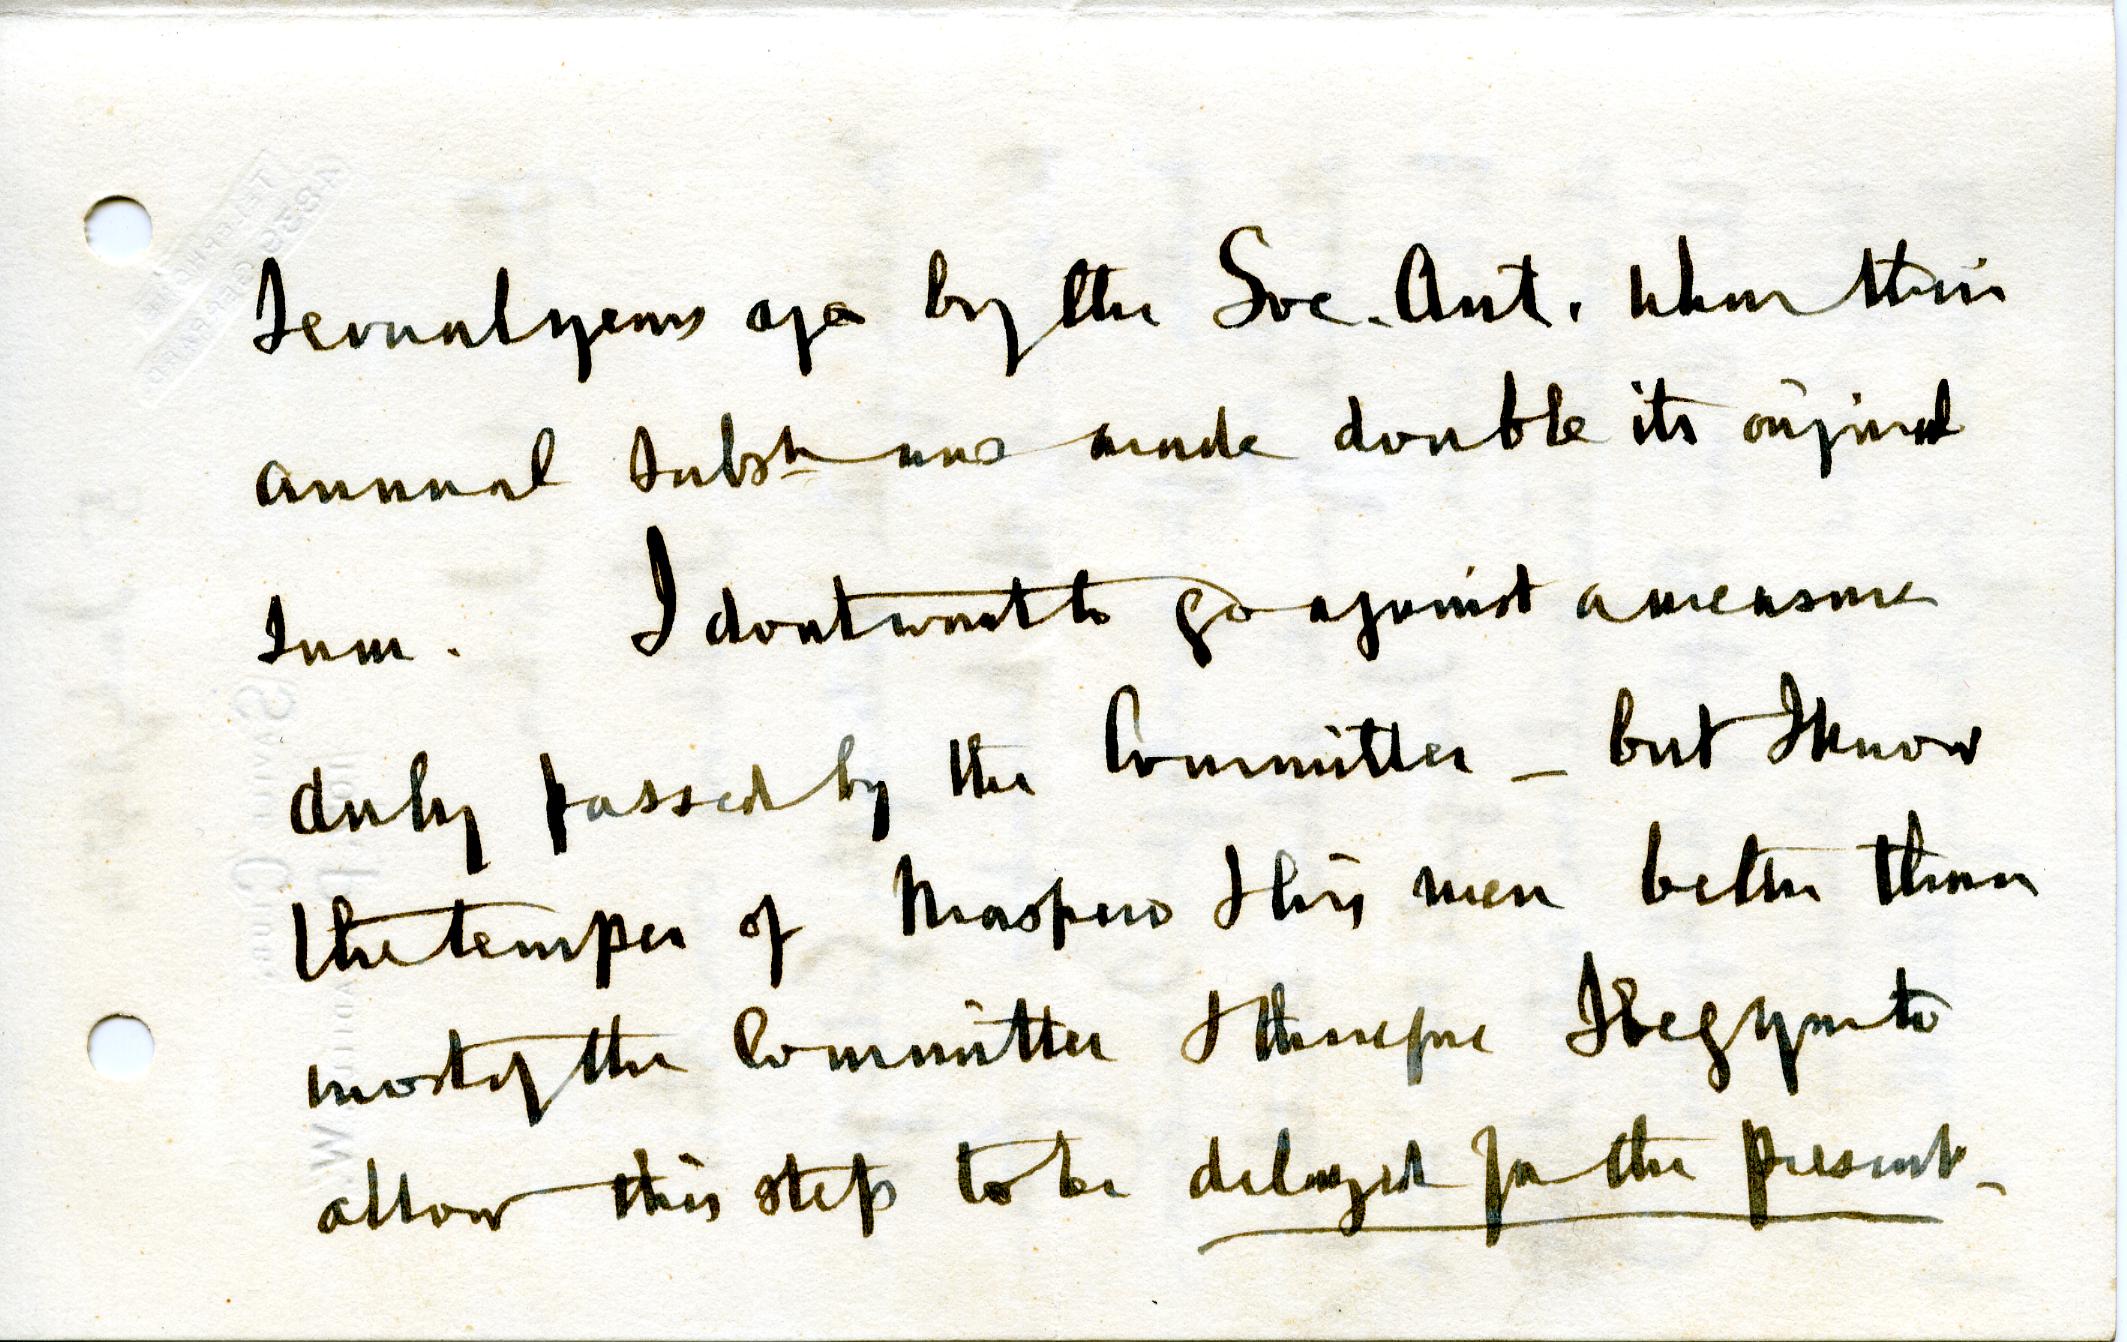 several years ago by the Soc. Ant. when their
annual subsn was made double its original
sum. I dont want to go against a measure
duly passed by the Committee – but I know
the temper of Maspero & his men better than
most of the Committee & therefore I beg you to
allow this step to be delayed for the present –
TELEPHONE
GERRARD
SAVILE CLUB,
PICCADILLY. W.